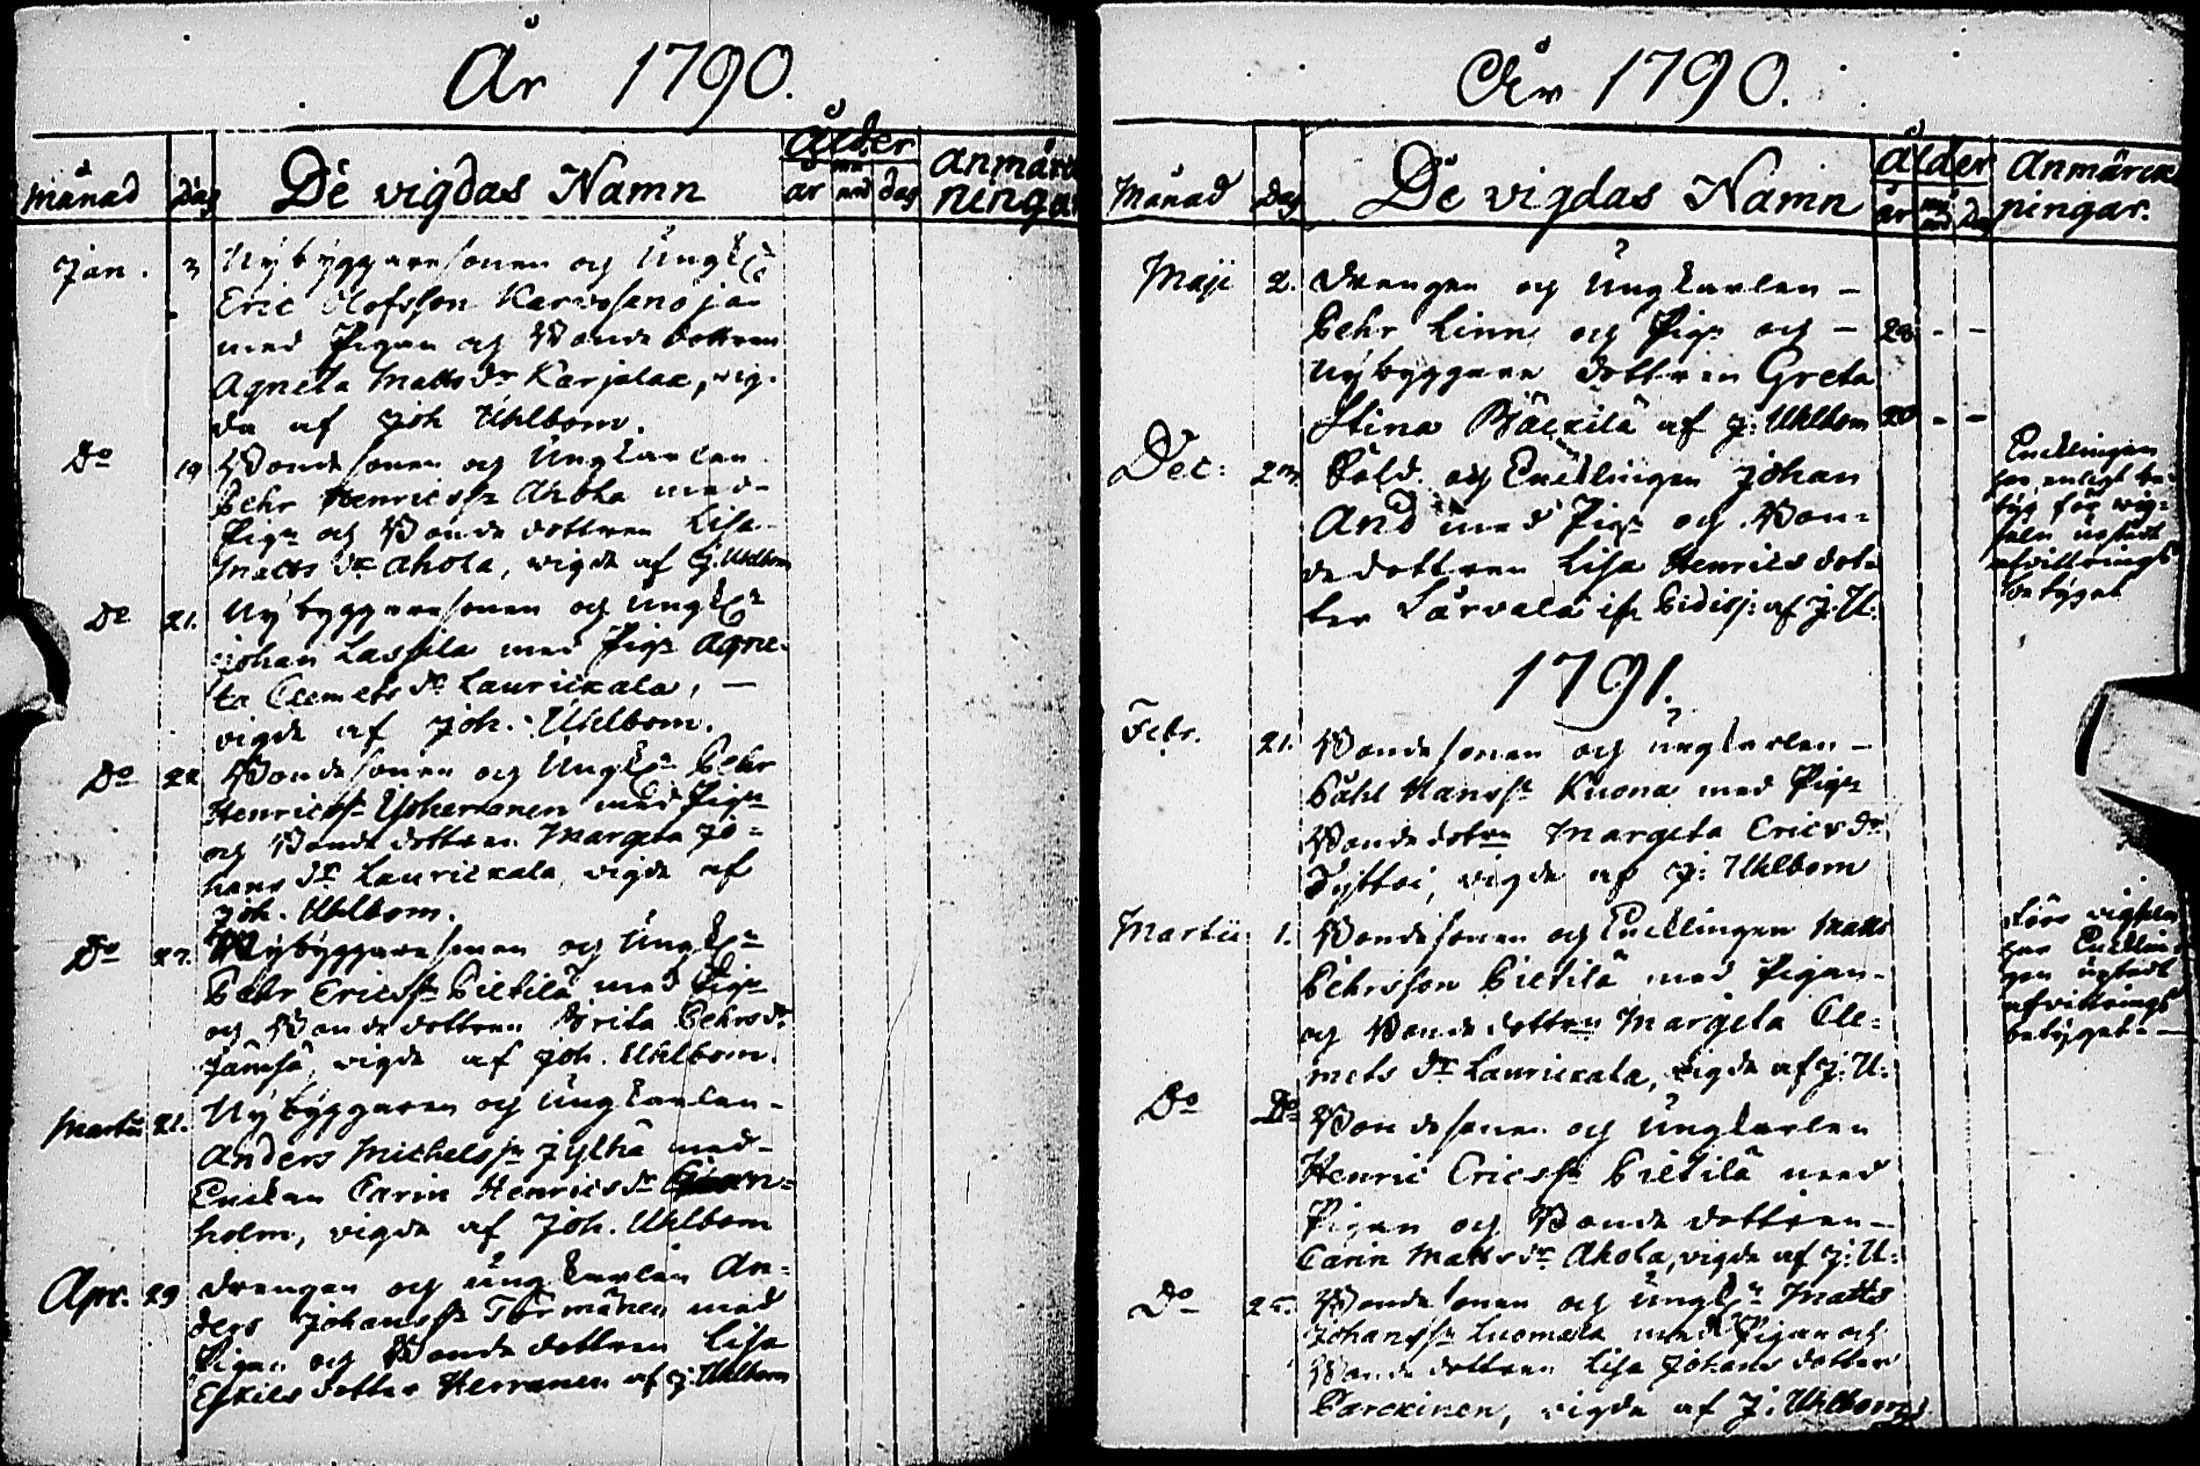 År 1790.
Månad Dag De vigdas Namn ålder år dag anmärck
ningar
Jan. 3 Nybyggaresonen og Ungk:n
Eric Olofsson
med Pigan og Bondedottren
Agneta Matts dr Karjalax, vig-
da af Joh Uhlbom.
Do 19 Bondesonen og Ungkarlen
Pehr Henricsn Ahola med
Pign og Bondedottren Lisa
Matts dr Ahola, vigde af J. Uhlbom
Do 21. Nybyggaresonen og Ungkn
Johan Lassila med Pign Agne-
ta Clemets dr Laurickala, —
vigde af Joh. Uhlbom.
Do 22 Bondesonen og Ungkn Pehr
Henricsn med Pign
og Bondedottren Margeta Jo=
hans dr Laurickala, vigde af
Joh. Uhlbom.
Do 27. Nybyggaresonen og Ungkn
Pehr Ericsn Pietilä med Pign
og Bondedottren Brita Pehrs dr
Jämsä, vigde af Joh. Uhlbom.
Martii 21. Nybyggaren og Ungkarlen
Anders Michelsn Jylhä med
Enckan Carin Henrics dr
holm, vigde af Joh. Uhlbom
Apr. 29 Drengen og ungkarlen An=
ders Johansn Törmänen med
Pigan og Bondedottren Lisa
Eskils dotter Herranen af J. Uhlbom
År 1790.
Månad Dag De vigdas Namn ålder år Dag Anmärck
ningar.
Maji 2. Drengen og Ungkarlen —
Pehr Linn og Pign og — 28 - -
Nybyggare dottren Greta
Stina Bäckilä af J: Uhlbom 20 - -
Dec: Sold. og Encklingen Johan
And med Pign og Bon=
dedottren Lisa Henrics dot=
ter Särvala af J. U:
Encklingen
har enligt be-
tyg för wig=
seln
afvittrings
betyget
1791.
Febr. 21. Bondesonen og ungkarlen —
Påhl Hansn Kuona med Pign
Bondedotrn Margeta Erics dr
vigde af J: Uhlbom
Martii 1. Bondesonen og Encklingen Matts
Pehrsson Pietilä med Pigan
og Bondedottren Margeta Cle=
mets dr Laurickala, vigde af J: U:
Före vigseln
har Encklin
gen
afvittrings
betyget. —
Do Do Bondesonen og Ungkarlen
Henric Ericsn Pietilä med
Pigan og Bondedottren —
Carin Matts dr Ahola, vigde af J: U:
Do Bondesonen og Ungkn Matts
Johansn Luomala med Pigan og
Bondedottren Lisa Johans dotter
Parckinen, vigde af J: Uhlbom